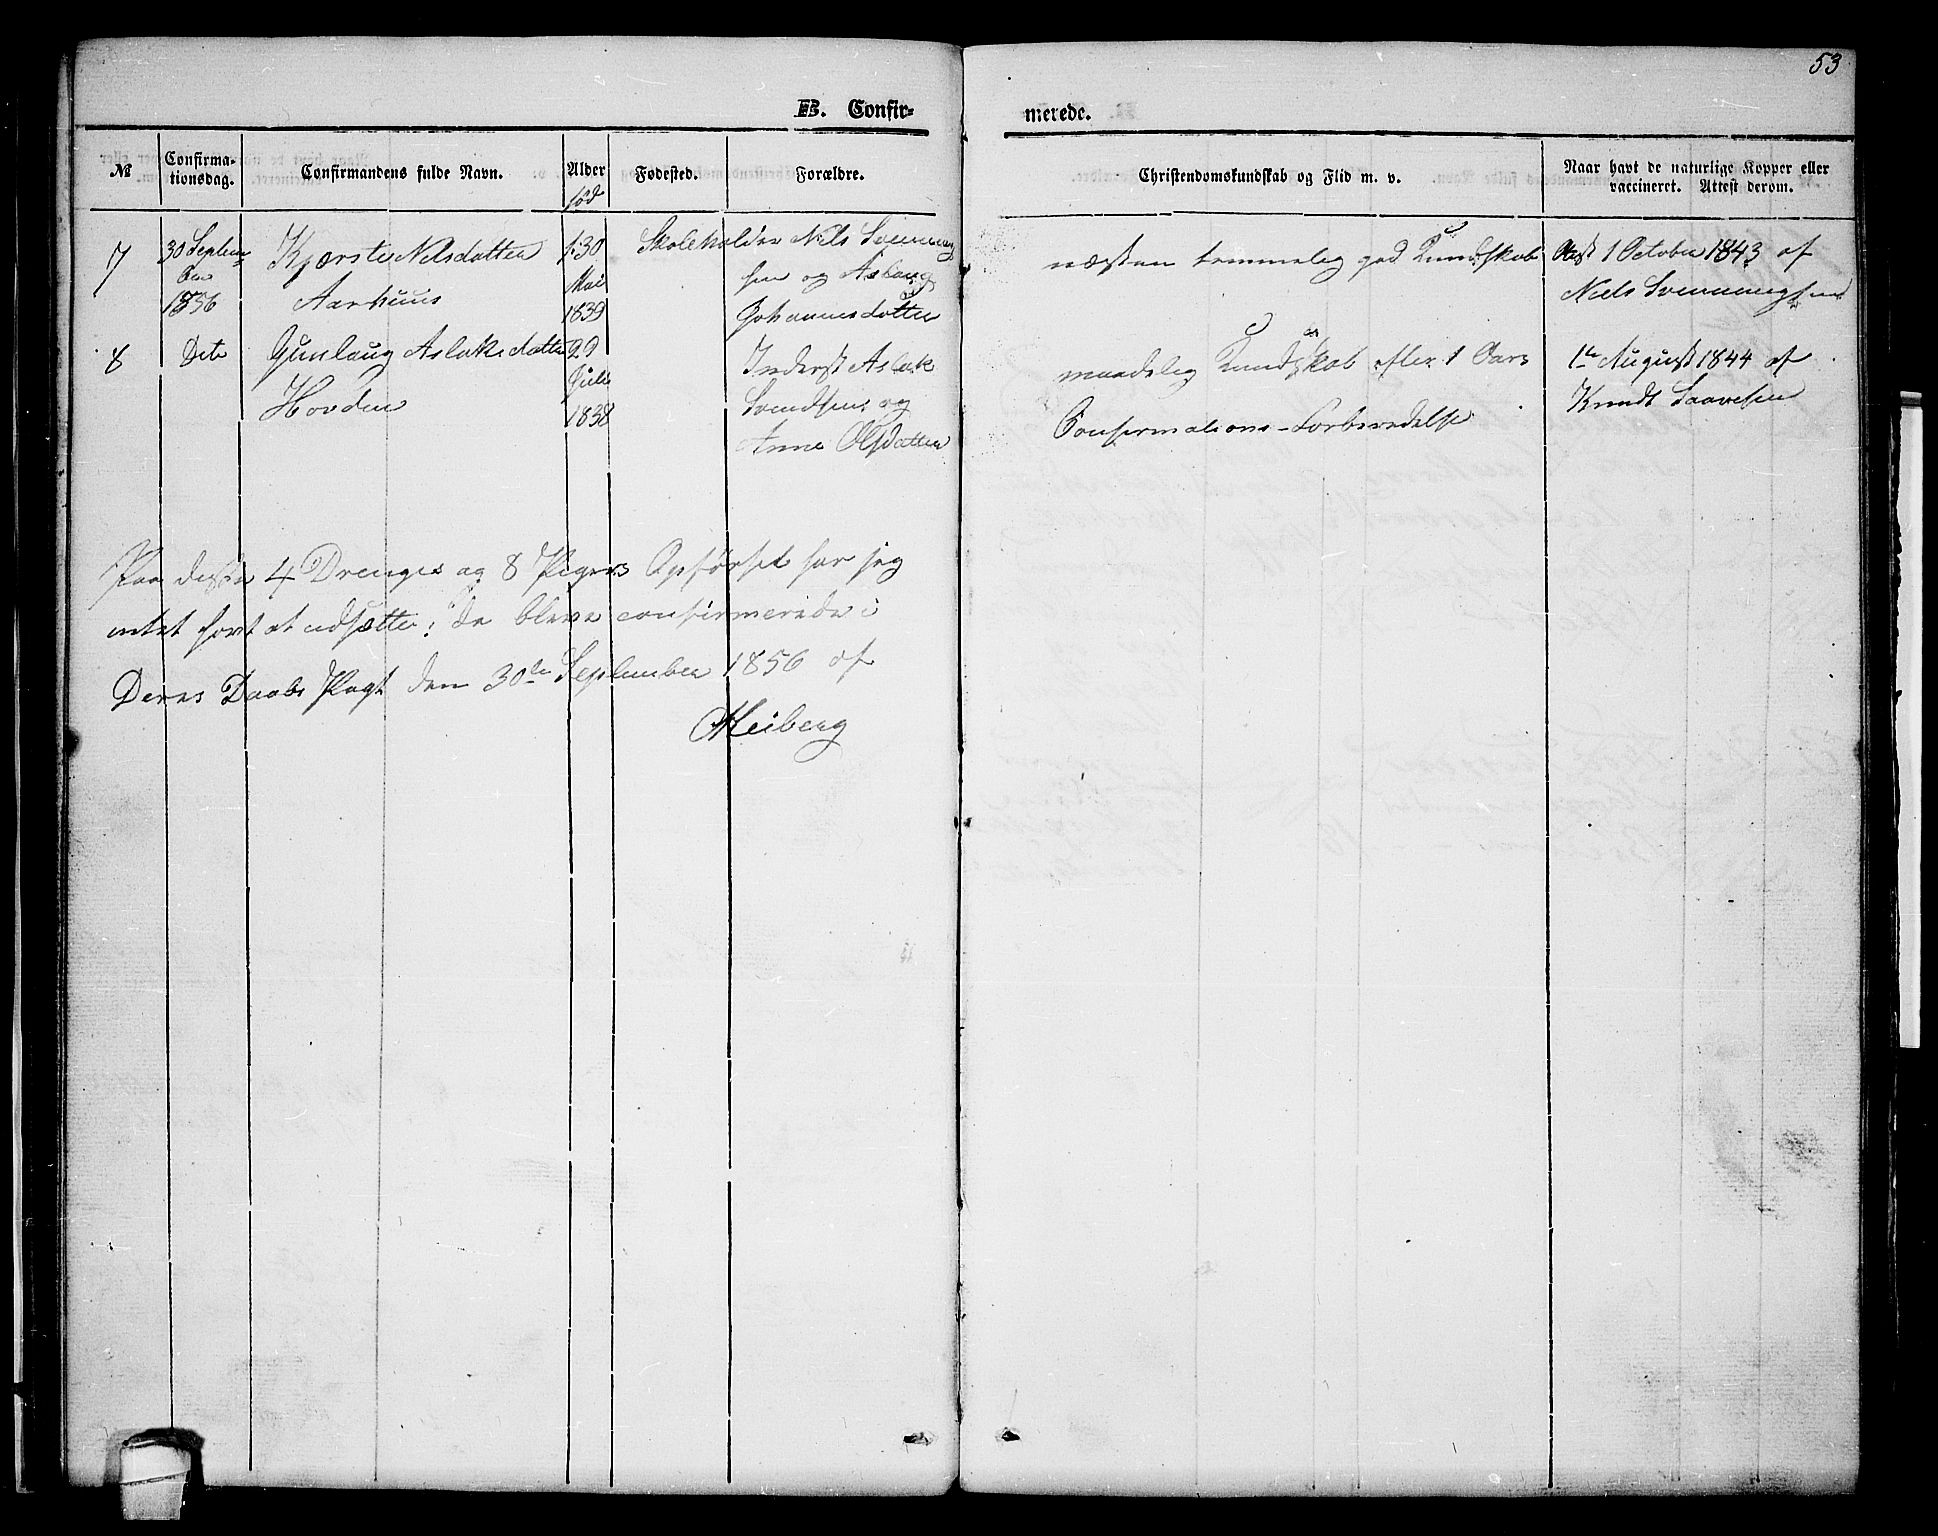 53
B. Confir-
merede.
№
Confirma-
tionsdag.
Confirmandens fulde Navn.
Alder
fød
Fødested.
Forældre.
Christendomskundskab og Flid m. v.
Naar havt de naturlige Kopper eller
vaccineret. Attest derom.
7
30 Septem-
ber
1856
Kjerste Nilsdatter
Aarhuus
30
Mai
1839
Skoleholder Nils Svennung
sen og Aslaug
Johannesdatter
næsten temmelig god Kundskab
Attest 1 October 1843 af
Niels Svennungsen
8
Dito
Gunlaug Aslaksdatter
Hovden
29
Juli
1838
Inderst Aslak
Svendsen og
Anne Olsdatter
maadelig Kundskab efter 1 Aars
Confirmations-Forberedelse
1te August 1844 af
Knudt Saavesen
Paa disse 4 Drenges og 8 Pigers Opførsel har jeg
intet havt at udsætte; de bleve confirmerede i
Deres Daabs Pagt den 30de September 1856 af
Heiberg